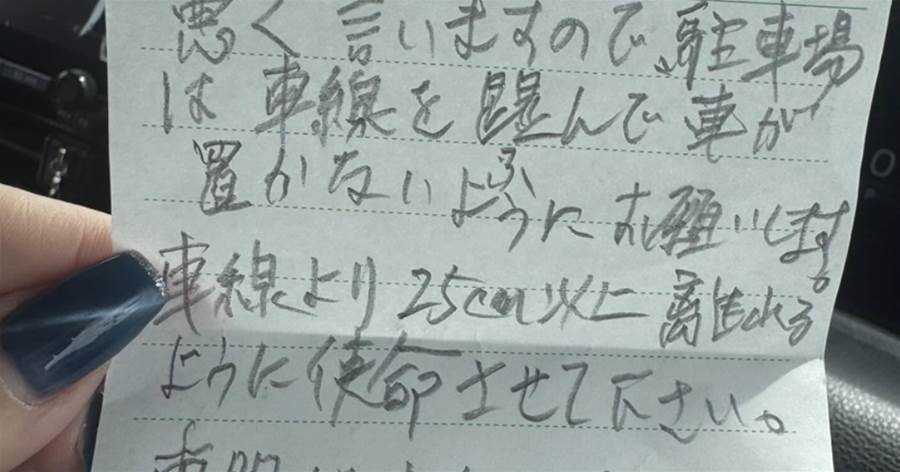 悪く言いますので、駐車場
は車線を踏んで車が
置かないようにお願いします。
車線より25cm以上離される
ように使命させて下さい。